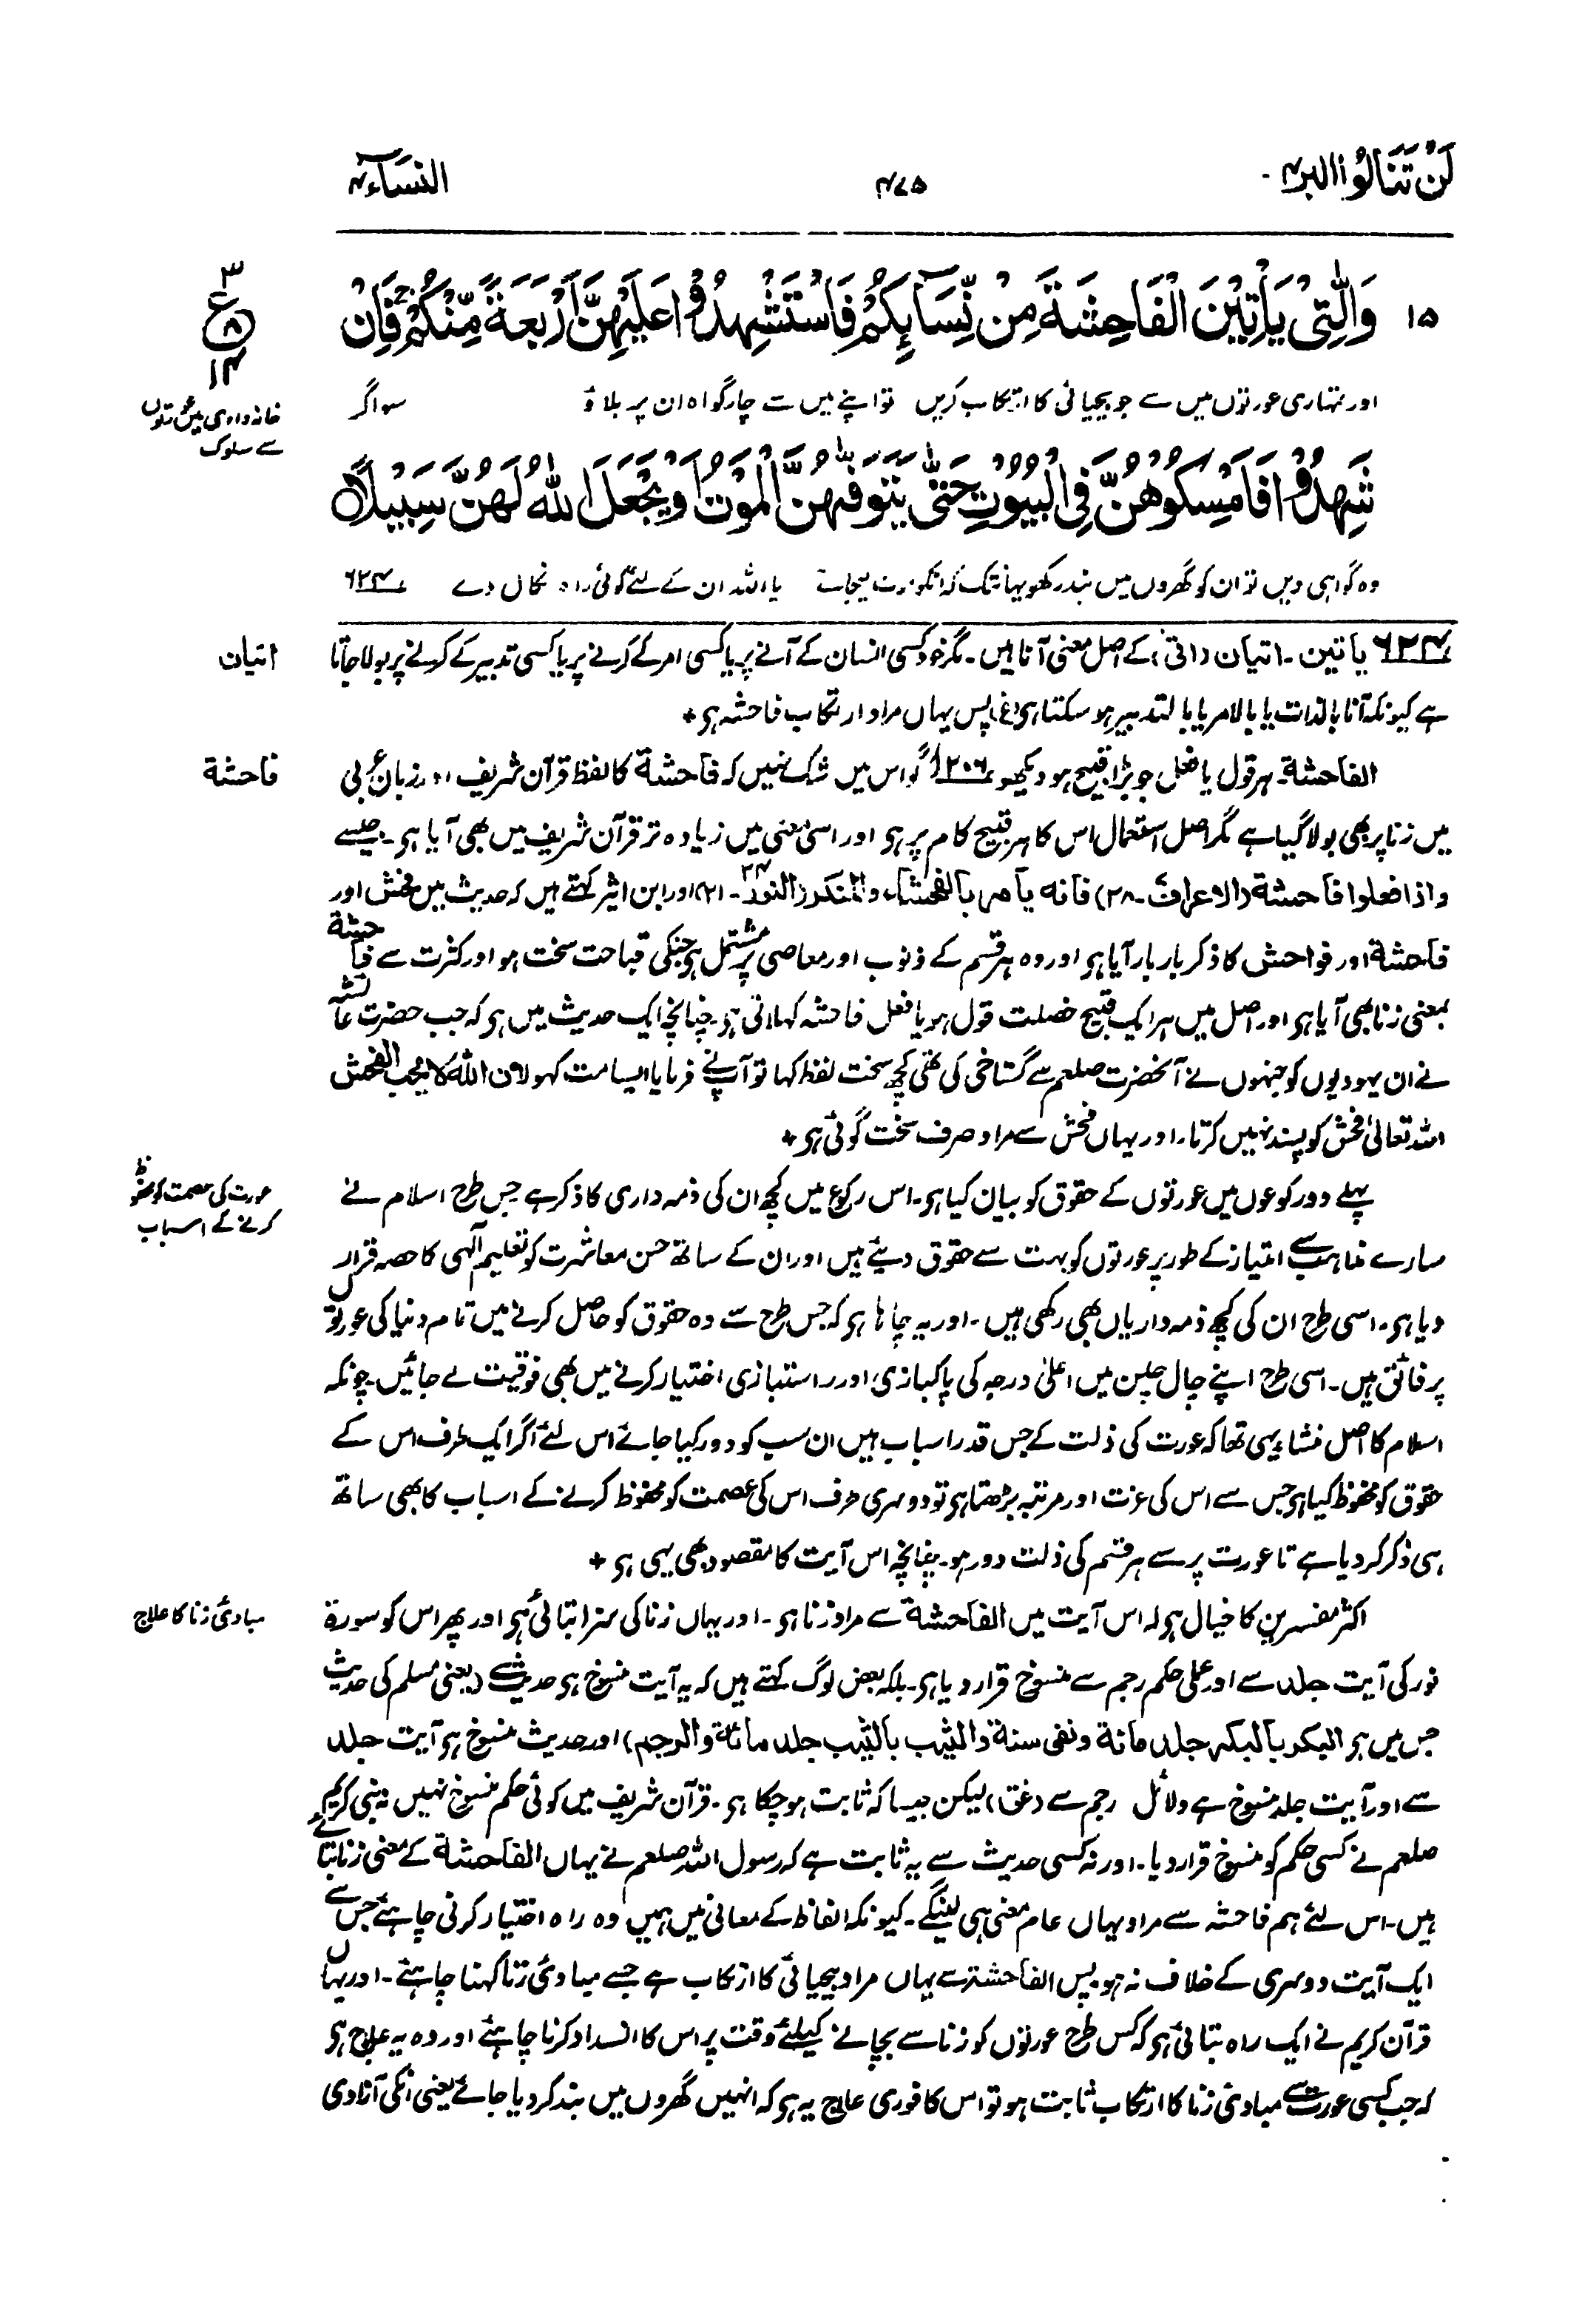 لَنْ تَنَالُوا البر۴
۴۷۵
النِّسَآء۴
۱۵ وَالّٰتِیْ یَاْتِیْنَ الْفَاحِشَةَ مِنْ نِّسَآىِٕكُمْ فَاسْتَشْهِدُوْا عَلَیْهِنَّ اَرْبَعَةً مِّنْكُمْ ۚ فَاِنْ
۳
ع
۸
۱۴
اور تمہاری عورتوں میں سے جو بیحیائی کا ارتکاب کریں تو اپنے میں سے چار گواہ ان پر بلاؤ سو اگر
خانہ داری میں عورتوں
سے سلوک
شَهِدُوْا فَاَمْسِكُوْهُنَّ فِی الْبُیُوْتِ حَتّٰى یَتَوَفّٰىهُنَّ الْمَوْتُ اَوْ یَجْعَلَ اللّٰهُ لَهُنَّ سَبِیْلًا
وہ گواہی دیں تو ان کو گھروں میں بند رکھو یہانتک کہ انکو موت لیجائے یا اللہ ان کے لئے کوئی راہ نکال دے ۶۲۴
۶۲۴ یاتین۔ اتیان (اتی) کے اصل معنی آنا ہیں۔ مگر خود کسی انسان کے آنے پر یا کسی امر کے کرنے پر یا کسی تدبیر کے کرنے پر بولا جاتا
اتیان
ہے کیونکہ آنا بالذات یا بالامر یا بالتدبیر ہو سکتا ہی (غ) پس یہاں مراد ارتکاب فاحشہ ہو +
الفاحشة۔ ہر قول یا فعل جو بڑا قبیح ہو دیکھو ۲۰۶ گو اس میں شک نہیں کہ فاحشة کا لفظ قرآن شریف اور زبان عربی
فاحشة
میں زنا پر بھی بولا گیا ہے مگر اصل استعمال اس کا ہر قبیح کام پر ہو اور اسی معنی میں زیادہ تر قرآن شریف میں بھی آیا ہو۔ جیسے
واذا فعلوا فاحشة (الاعراف۔۲۸) فانه یامر بالفحشاء والمنکر (النور۲۴۔۲۱) اور ابن اثیر کہتے ہیں کہ حدیث میں فحش اور
فاحشة اور فواحش کا ذکر بار بار آیا ہو اور وہ ہر قسم کے ذنوب اور معاصی پر مشتمل ہو جنکی قباحت سخت ہو اور کثرت سے فاحشة
بمعنی زنا بھی آیا ہو اور اصل میں ہر ایک قبیح خصلت قول ہو یا فعل فاحشہ کہلاتی ہو۔ چنانچہ ایک حدیث میں ہو کہ جب حضرت عائشہ
نے ان یہودیوں کو جنہوں نے آنحضرت صلعم سے گستاخی کی تھی کچھ سخت لفظ کہا تو آپ نے فرمایا ایسا مت کہو لان اللہ لا یحب الفحش
اللہ تعالیٰ فحش کو پسند نہیں کرتا۔ اور یہاں فحش سے مراد صرف سخت گوئی ہو +
پہلے دو رکوعوں میں عورتوں کے حقوق کو بیان کیا ہو۔ اس رکوع میں کچھ ان کی ذمہ داری کا ذکر ہے جس طرح اسلام نے
عورت کی عصمت کو محفوظ
کرنے کے اسباب
سارے مذاہب سے امتیاز کے طور پر عورتوں کو بہت سے حقوق دیئے ہیں اور ان کے ساتھ حسن معاشرت کو تعلیم الٰہی کا حصہ قرار
دیا ہو۔ اسی طرح ان کی کچھ ذمہ داریاں بھی رکھی ہیں۔ اور یہ چاہا ہو کہ جس طرح سے وہ حقوق کو حاصل کرنے میں تمام دنیا کی عورتوں
پر فائق ہیں۔ اسی طرح اپنے چال چلن میں اعلیٰ درجہ کی پاکبازی اور راستبازی اختیار کرنے میں بھی فوقیت لے جائیں۔ چونکہ
اسلام کا اصل منشاء یہی تھا کہ عورت کی ذلت کے جس قدر اسباب ہیں ان سب کو دور کیا جائے اس لئے اگر ایک طرف اس کے
حقوق کو محفوظ کیا ہو جس سے اس کی عزت اور مرتبہ بڑھتا ہو تو دوسری طرف اس کی عصمت کو محفوظ کرنے کے اسباب کا بھی ساتھ
ہی ذکر کر دیا ہے تا عورت پر سے ہر قسم کی ذلت دور ہو۔ چنانچہ اس آیت کا مقصود بھی یہی ہو +
اکثر مفسرین کا خیال ہو کہ اس آیت میں الفاحشة سے مراد زنا ہو۔ اور یہاں زنا کی سزا بتائی ہو اور پھر اس کو سورۃ
مبادئ زنا کا علاج
نور کی آیت جلد سے اور عملی حکم رجم سے منسوخ قرار دیا ہو۔ بلکہ بعض لوگ کہتے ہیں کہ یہ آیت منسوخ ہو حدیث سے (یعنی مسلم کی حدیث
جس میں ہو البکر بالبکر جلد مائة ونفی سنة والثیب بالثیب جلد مائة والرجم) اور حدیث منسوخ ہو آیت جلد
سے اور آیت جلد منسوخ ہے دلائل رجم سے (غق) لیکن جیسا کہ ثابت ہو چکا ہو۔ قرآن شریف میں کوئی حکم منسوخ نہیں نہ نبی کریم
صلعم نے کسی حکم کو منسوخ قرار دیا۔ اور نہ کسی حدیث سے یہ ثابت ہے کہ رسول اللہ صلعم نے یہاں الفاحشة کے معنی زنا بتائے
ہیں۔ اس لئے ہم فاحشہ سے مراد یہاں عام معنی ہی لینگے۔ کیونکہ الفاظ کے معانی میں ہمیں وہ راہ اختیار کرنی چاہئے جس سے
ایک آیت دوسری کے خلاف نہ ہو پس الفاحشة سے یہاں مراد بیحیائی کا ارتکاب ہے جسے مبادئ زنا کہنا چاہئے۔ اور یہاں
قرآن کریم نے ایک راہ بتائی ہو کہ کس طرح عورتوں کو زنا سے بچانے کیلئے وقت پر اس کا انسداد کرنا چاہئے اور وہ یہ علاج ہو
کہ جب کسی عورت سے مبادئ زنا کا ارتکاب ثابت ہو تو اس کا فوری علاج یہ ہو کہ انہیں گھروں میں بند کر دیا جائے یعنی انکی آزادی